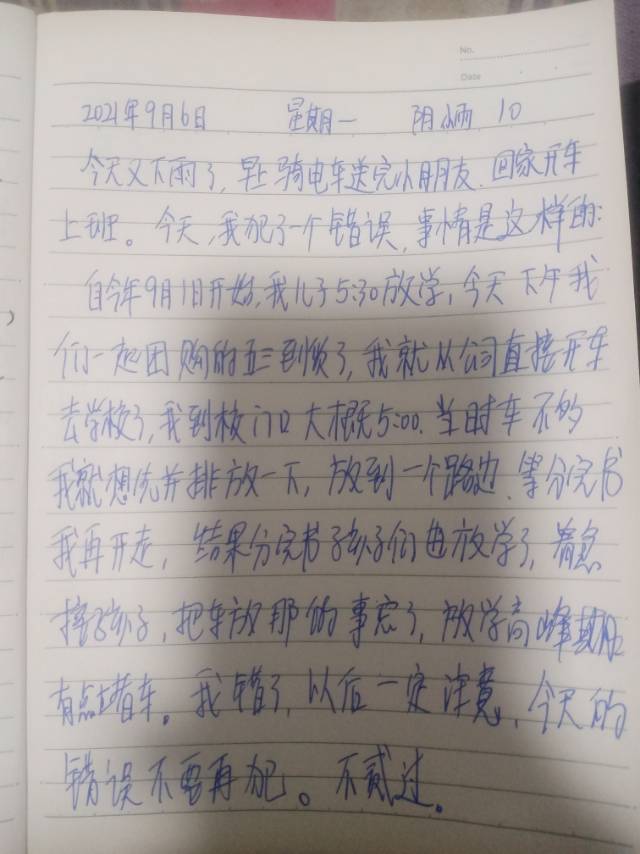 No.
Date
2021年9月6日 星期一 阴 小雨 10
今天又下雨了,早上骑电车送完小朋友.回家开车
上班。今天,我犯了一个错误,事情是这样的:
自今年9月1日开始,我儿子5:30放学,今天下午我
们一起团购的五三到货了,我就从公司直接开车
去学校了,我到校门口大概5:00.当时车不多
我就想先并排放一下,放到一个路边.等分完书
我再开走,结果分完书孩子们也放学了,着急
接孩子,把车放那的事忘了,放学高峰期
有点堵车。我错了,以后一定注意,今天的
错误不要再犯。不贰过.